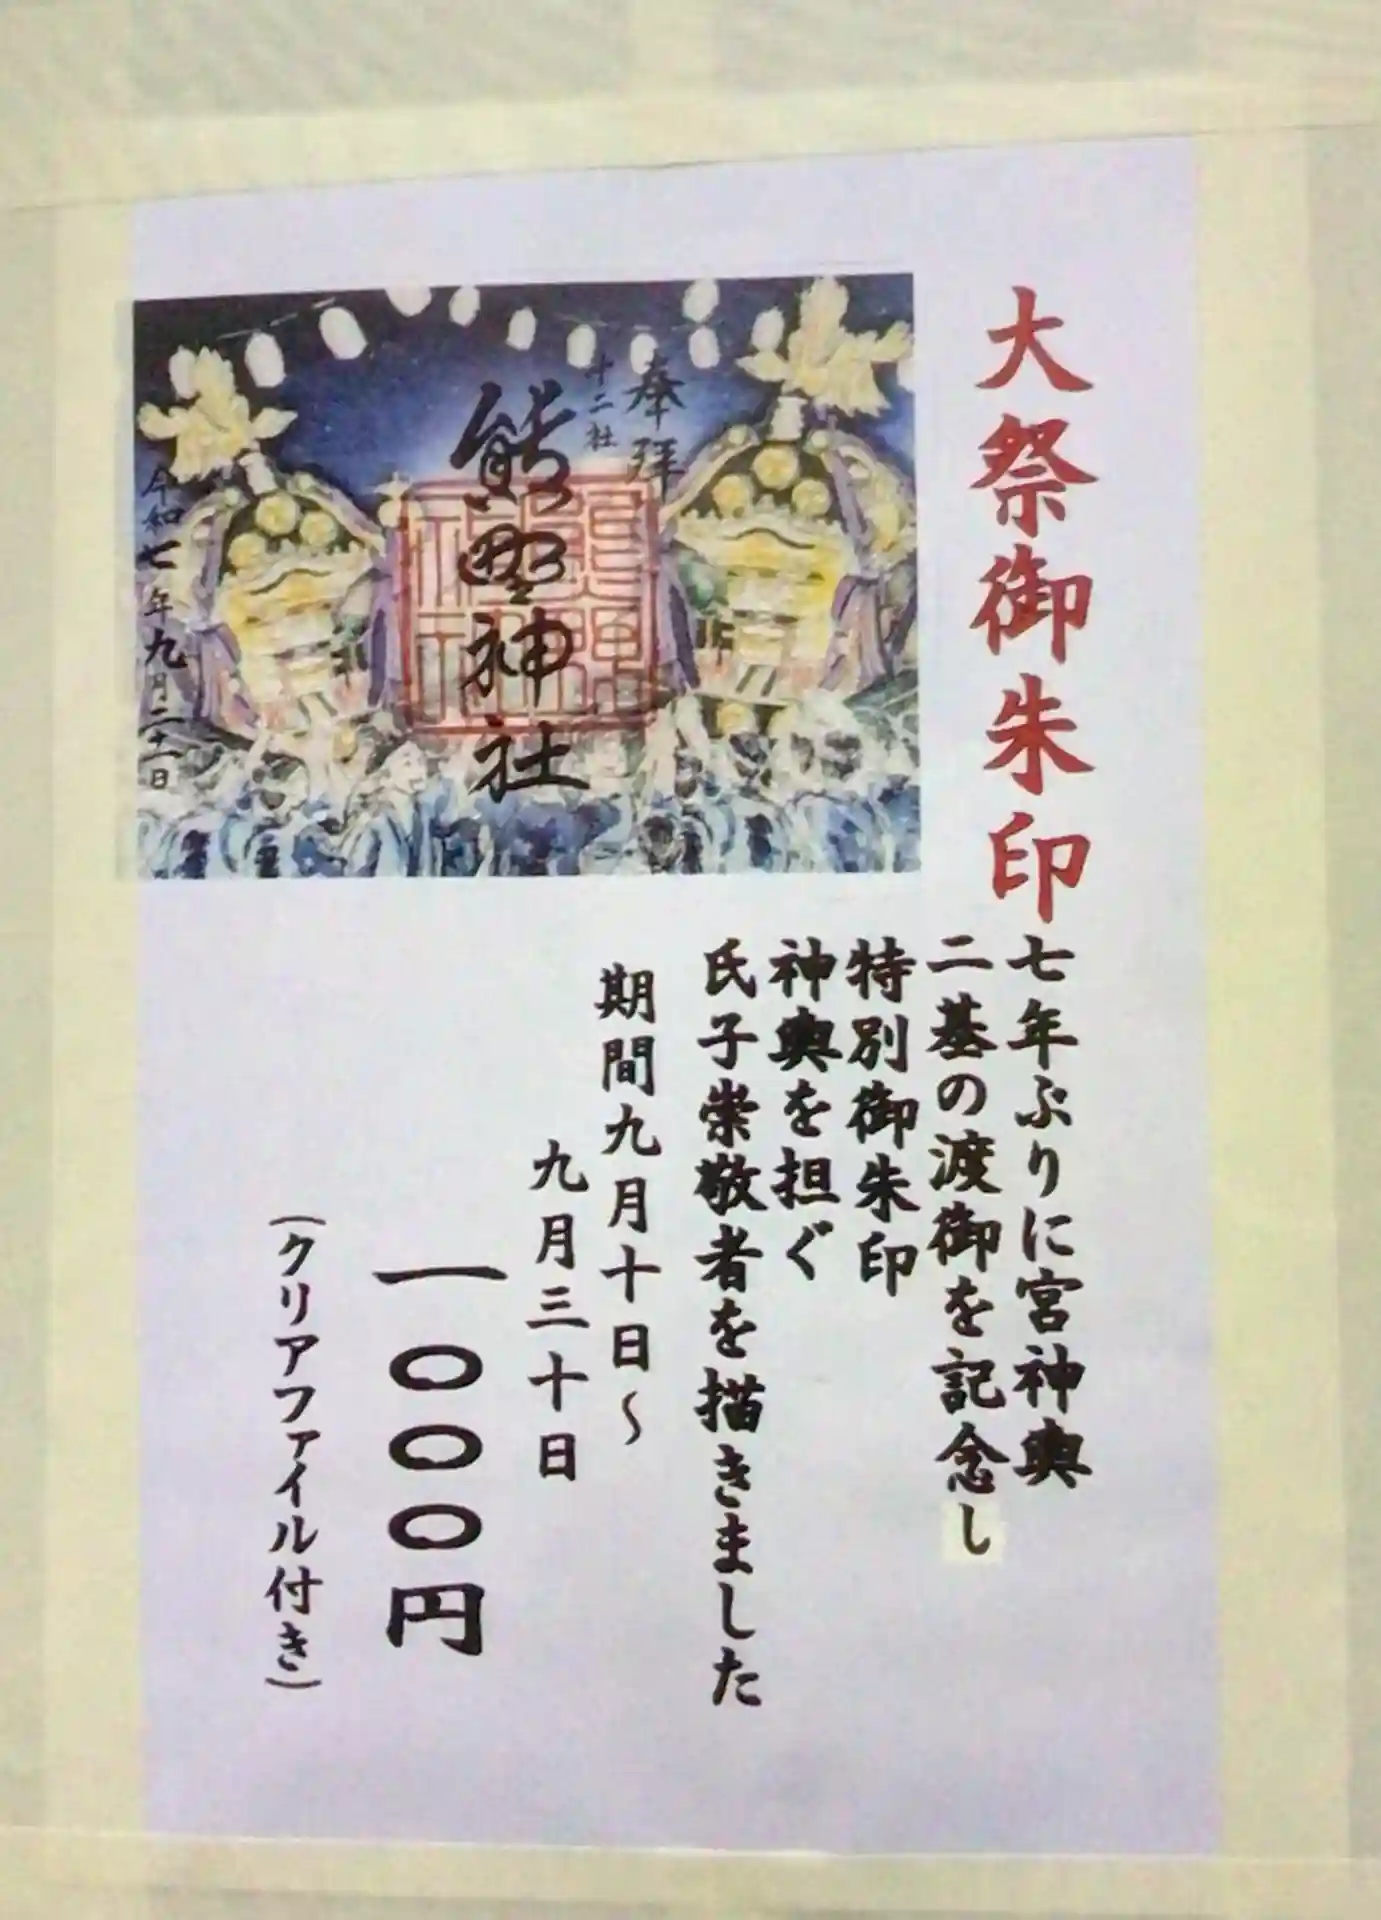 大祭御朱印
七年ぶりに宮神輿
二基の渡御を記念し
特別御朱印
神輿を担ぐ
氏子崇敬者を描きました
期間九月十日〜
九月三十日
一〇〇〇円
（クリアファイル付き）
奉拝
十二社
熊野神社
令和七年九月二十一日